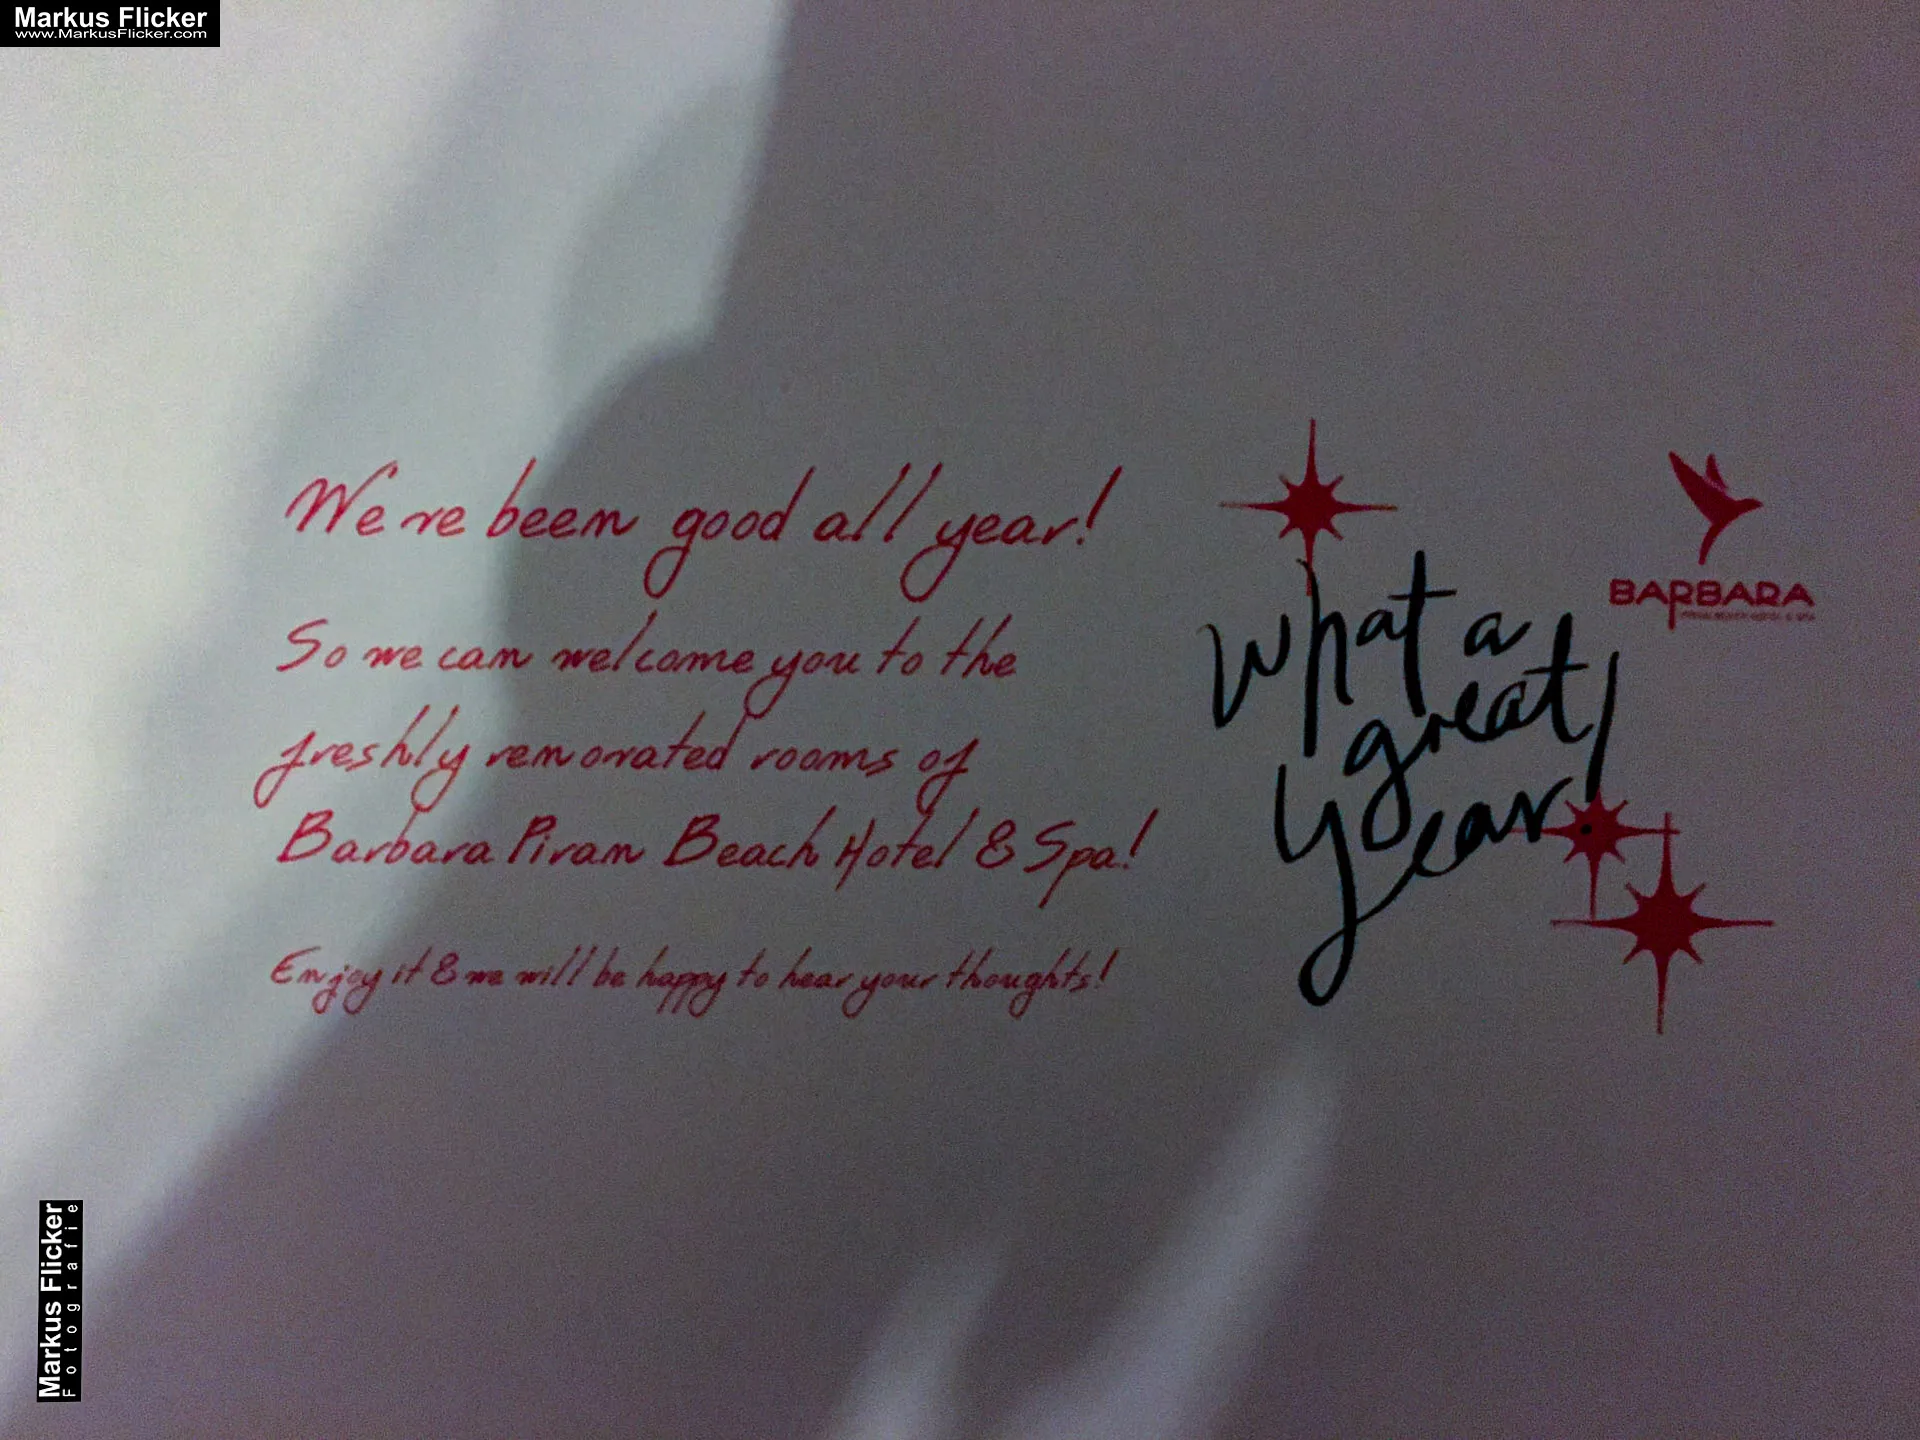 Markus Flicker
www.MarkusFlicker.com
We're been good all year!
So we can welcome you to the
freshly renovated rooms of
Barbara Piran Beach Hotel & Spa!
Enjoy it & we will be happy to hear your thoughts!
what a
great
year!
BARBARA
PIRAN BEACH HOTEL & SPA
Markus Flicker
Fotografie